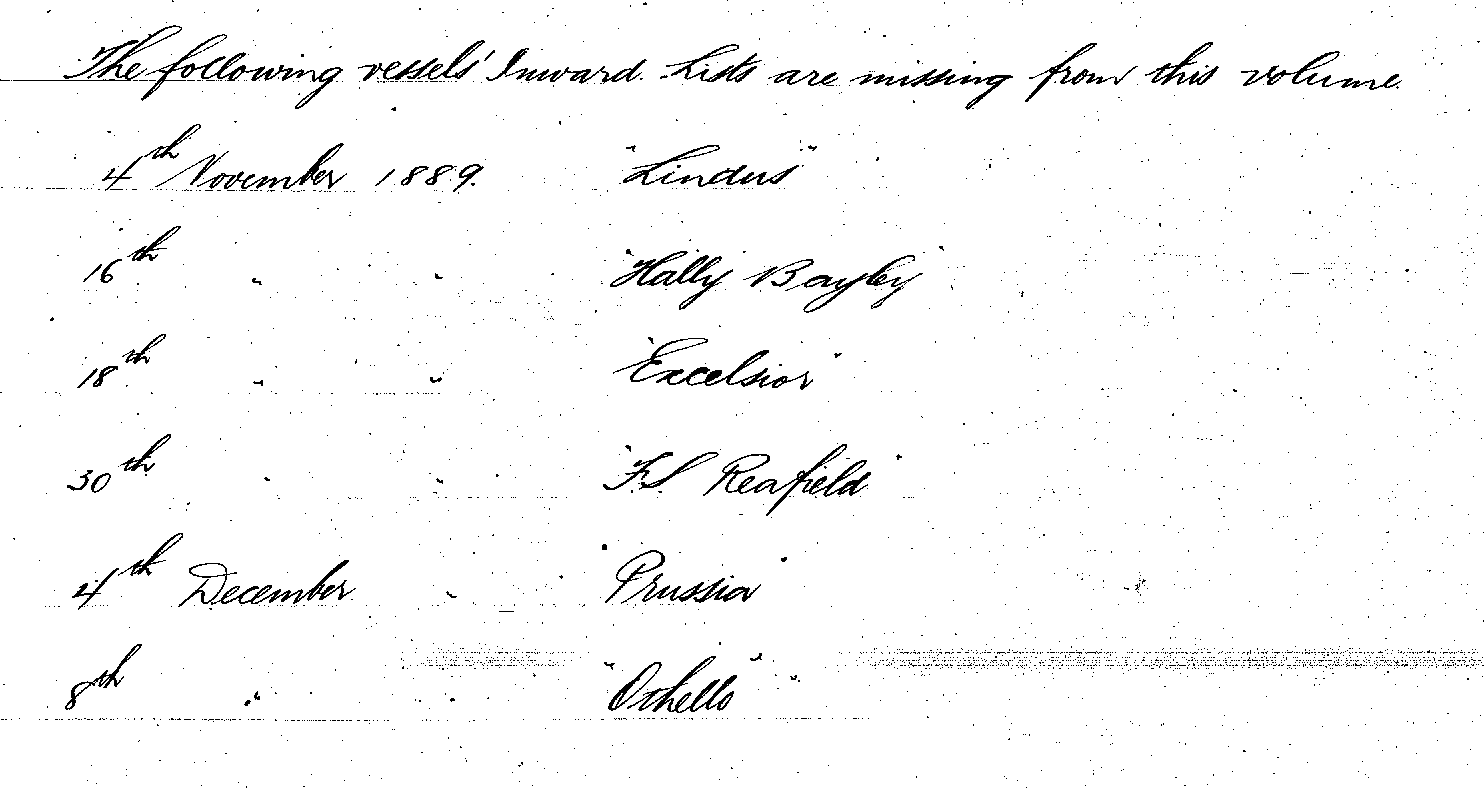 The following vessels' Inward Lists are missing from this volume.
4th November 1889. "Lindus"
16th " " "Hally Bayley"
18th " " "Excelsior"
30th " " "F.S. Reafield"
4th December " "Prussia"
8th " " "Othello"